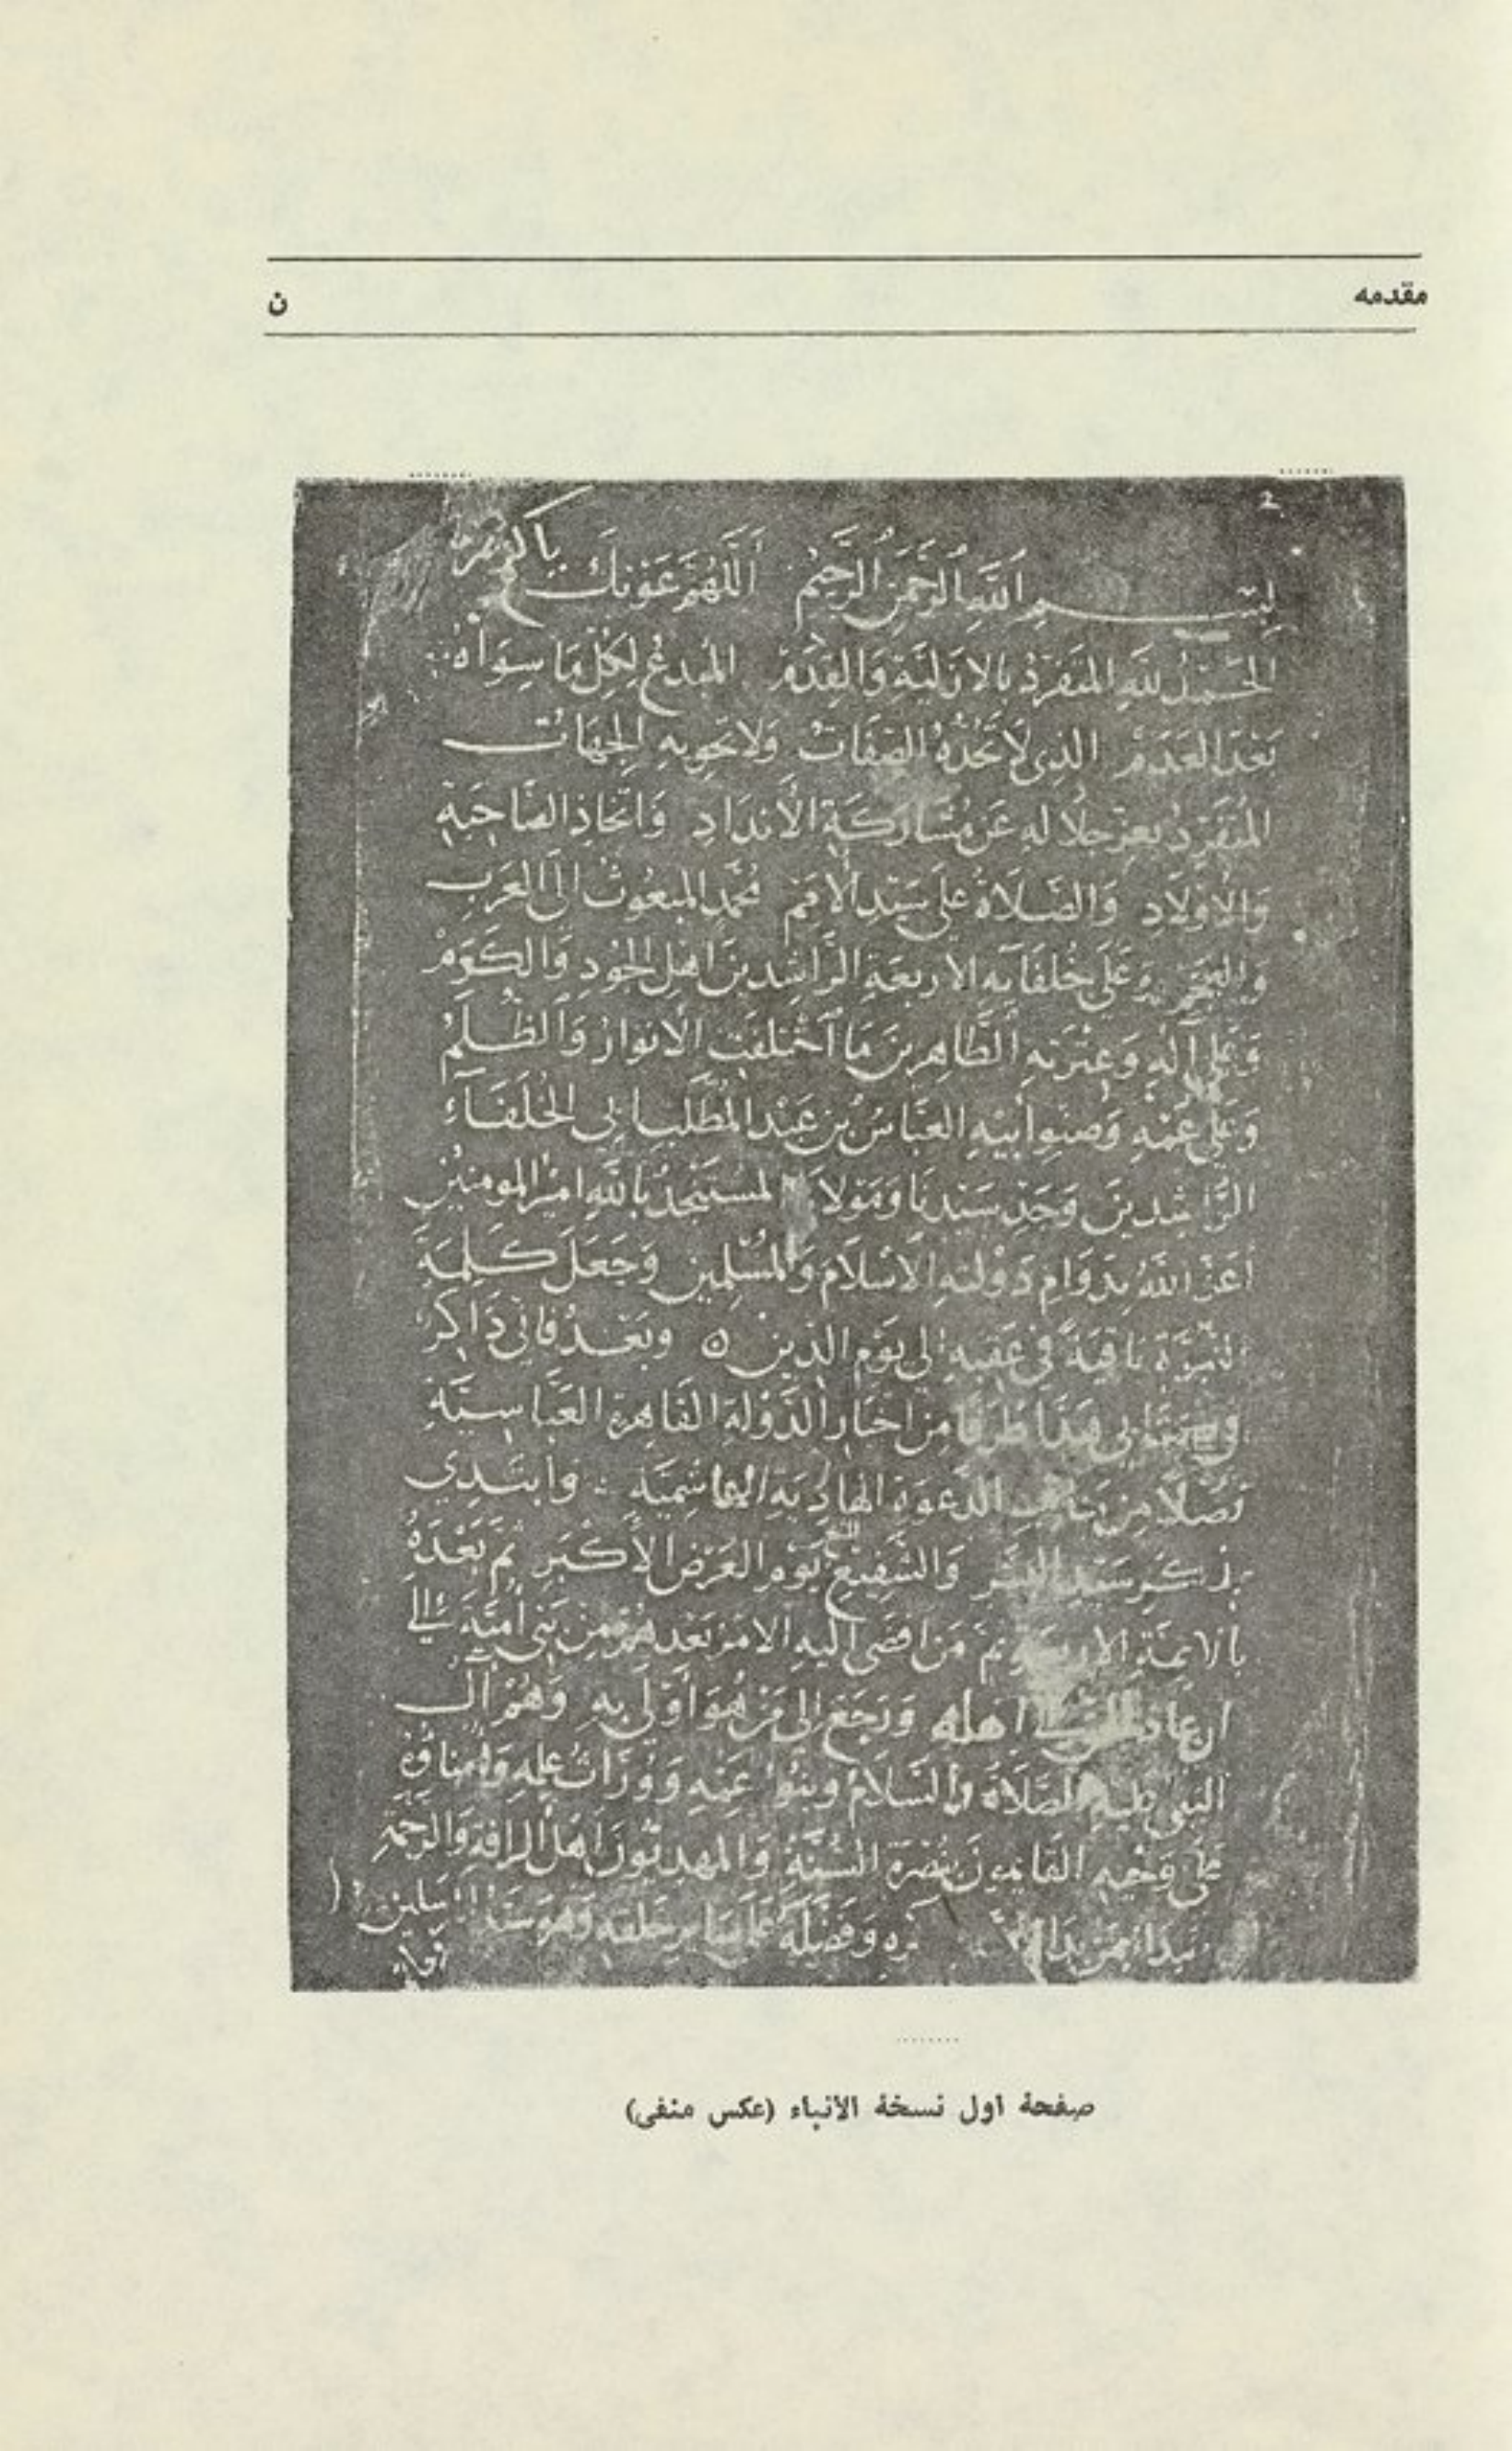 مقدمه
ن
2
بِسْمِ اللَّهِ الرَّحْمَنِ الرَّحِيمِ اللَّهُمَّ عَوْنَكَ يَا كريم
الحَمْدُ لِلَّهِ المتَفَرِّدِ بالازليَّةِ وَالقِدَمْ المُبدِع لِكُلِّ مَا سِوَاهُ
بَعْدَ العَدَمْ الذِى لَا تَحُدُّهُ الصِّفَاتُ وَلا تَحْوِيهِ الجِهَاتُ
المُتَفَرِّدِ بعِزِّ جلَالِهِ عَن مُشَارَكَةِ الأَندَادِ وَاتّخَاذِ الصَّاحِبَةِ
وَالأَوْلَادِ وَالصَّلَاةُ عَلَى سَيّدِ الأُمَمْ مُحَمَّدٍ المبعُوثِ إلَى العَرَبِ
وَالعَجَمْ وَعَلَى خُلفَآئِهِ الأربعَةِ الرَّاشِدينَ اهْلِ الجُودِ وَالكَرَمْ
وَعَلَى آلِهِ وَعِتْرَتِهِ الطَّاهِرِينَ مَا آخْتلَفَتِ الأنوارُ وَالظُّلَمُ
وَعَلَى عَمِّهِ وَصِنْوِ أَبِيهِ العَبَّاسِ بْنِ عَبْدِ المُطَّلِبِ أَبِى الخُلَفَآءِ
الرَّاشِدِينَ وَجَدِّ سَيِّدِنَا وَمَوْلَانَا المُسْتَنجِد بِاللَّهِ امِيْرِ المومنِيْنَ
اعَزَّ اللَّهُ بِدَوَامِ دَوْلَتِهِ الأسْلَامَ وَالمُسْلِمينَ وَجَعَلَ كَلِمَةَ
النّبُوَّةِ بَاقِيَةً فى عَقِبِهِ إلى يَوْمِ الدّين ٥ وبَعْدُ فَانّى ذَاكِر
فى كتابى هَذَا طَرَفًا مِن اخبَارِ الدَّوْلَةِ القَاهِرَةِ العَبَّاسِيَّةِ
الدَّعوَةِ الهادِيَةِ الهاشِمِيَّة وابتَدِي
بذكرِ سَيِّدِ البَشَر وَالشَّفِيعِ يَوْمِ العَرْضِ الأَكْبَرِ ثُمَّ بَعْدَهُ
بالائِمَّةِ الاربعَةِ ثمَّ مَن افضَى إليهِ الامرُ بَعْدَهُمْ مِن بَنِى أُمَيَّةَ إلَى
ان عاد اهلهِ وَرَجَعَ إلى مَنْ هُوَ أَوْلَى بهِ وَهُمْ آل
النبى عليهِ الصَّلَاةُ والسَّلَامُ وبَنُو عَمِّهِ وَوُرَّاثُ عِلمِهِ وَأُمنَاؤهُ
عَلى وَحْيِهِ القَايِمُونَ بنُصْرَةِ السُّنَّةِ وَالمَهدِيّونَ اهلُ الرافةِ وَالرَّحْمَةِ
وَفَضَّلَهُ عَلَى سَايِرِ خَلقِهِ وَهُوَ سَيِّدُ
صفحة اول نسخة الأنباء (عكس منفى)